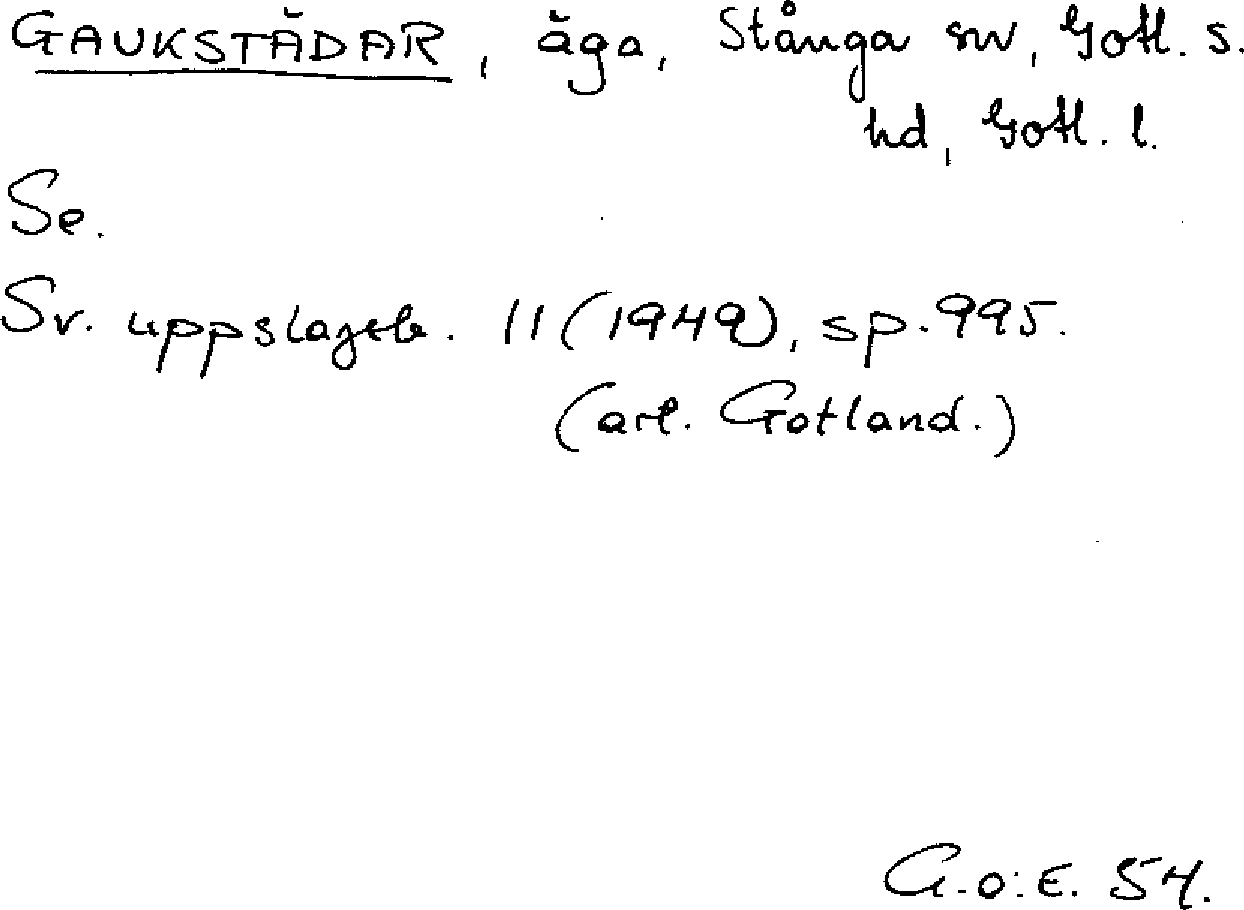 GAUKSTÄDAR, äga, Stånga sn, Gotl. s.
hd, Gotl. l.
Se.
Sv. uppslagsb. 11 (1949), sp. 995.
(art. Gotland.)
G.O:E. 54.